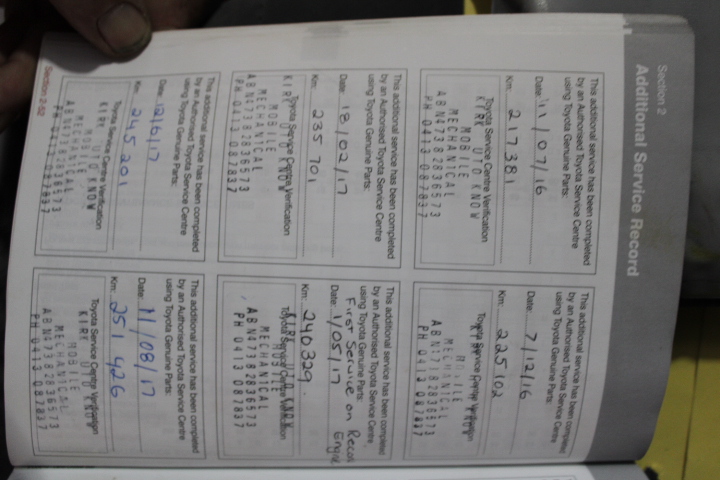 Section 2
Additional Service Record
This additional service has been completed
by an Authorised Toyota Service Centre
using Toyota Genuine Parts:
Date: 11/07/16
Km: 217 381
Toyota Service Centre Verification
KIRK UTO KNOW
MOBILE
MECHANICAL
ABN47382836573
PH 0413 087837
This additional service has been completed
by an Authorised Toyota Service Centre
using Toyota Genuine Parts:
Date: 7/12/16
Km: 225 102
Toyota Service Centre Verification
UTO KNOW
MOBILE
MECHANICAL
ABN47382836573
PH 0413 087837
This additional service has been completed
by an Authorised Toyota Service Centre
using Toyota Genuine Parts:
Date: 18/02/17
Km: 235 701
Toyota Service Centre Verification
KIRK UTO KNOW
MOBILE
MECHANICAL
ABN47382836573
PH 0413 087837
This additional service has been completed
by an Authorised Toyota Service Centre
using Toyota Genuine Parts:
First Service on Recon
Date: 1/05/17
Km: 240 329.
Toyota Service Centre Verification
UTO KNOW
MOBILE
MECHANICAL
ABN47382836573
PH 0413 087837
This additional service has been completed
by an Authorised Toyota Service Centre
using Toyota Genuine Parts:
Date: 12/6/17
Km: 245 201
Toyota Service Centre Verification
KIRK UTO KNOW
MOBILE
MECHANICAL
ABN47382836573
PH 0413 087837
This additional service has been completed
by an Authorised Toyota Service Centre
using Toyota Genuine Parts:
Date: 11/08/17
Km: 251 426
Toyota Service Centre Verification
KIRK UTO KNOW
MOBILE
MECHANICAL
ABN47382836573
PH 0413 087837
Section 2-52